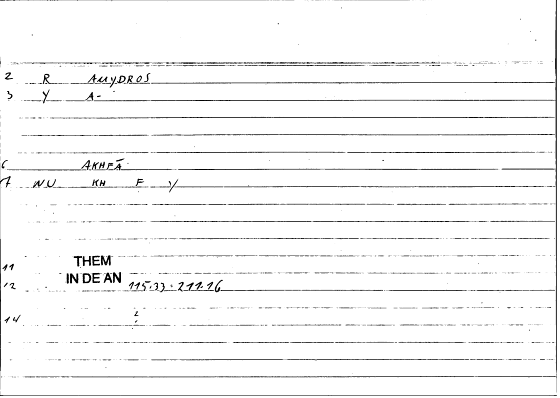 2 R AMYDROS
3 Y A-
6 AKHFĀ
7 NU KH F Y
11 THEM
IN DE AN
12 115.33 - 211.16
14